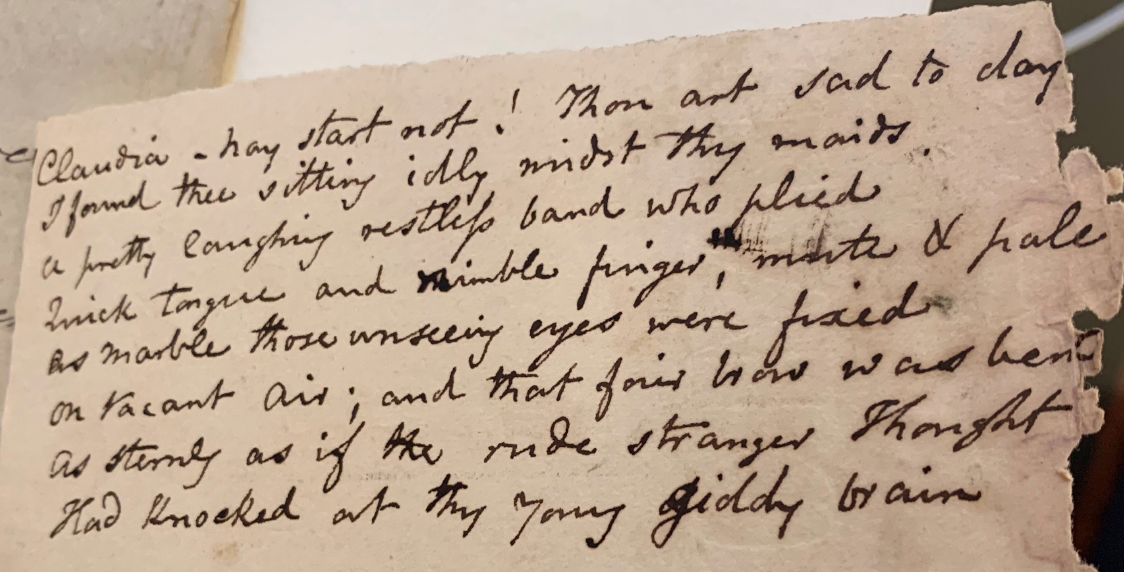 Claudia - nay start not! Thou art sad to day
I found thee sitting idly midst thy maids.
a pretty laughing restless band who plied
Quick tongue and nimble finger, mute & pale
as marble those unseeing eyes were fixed
on vacant air; and that fair brow was bent
As sternly as if the rude stranger Thought
Had knocked at thy young giddy brain